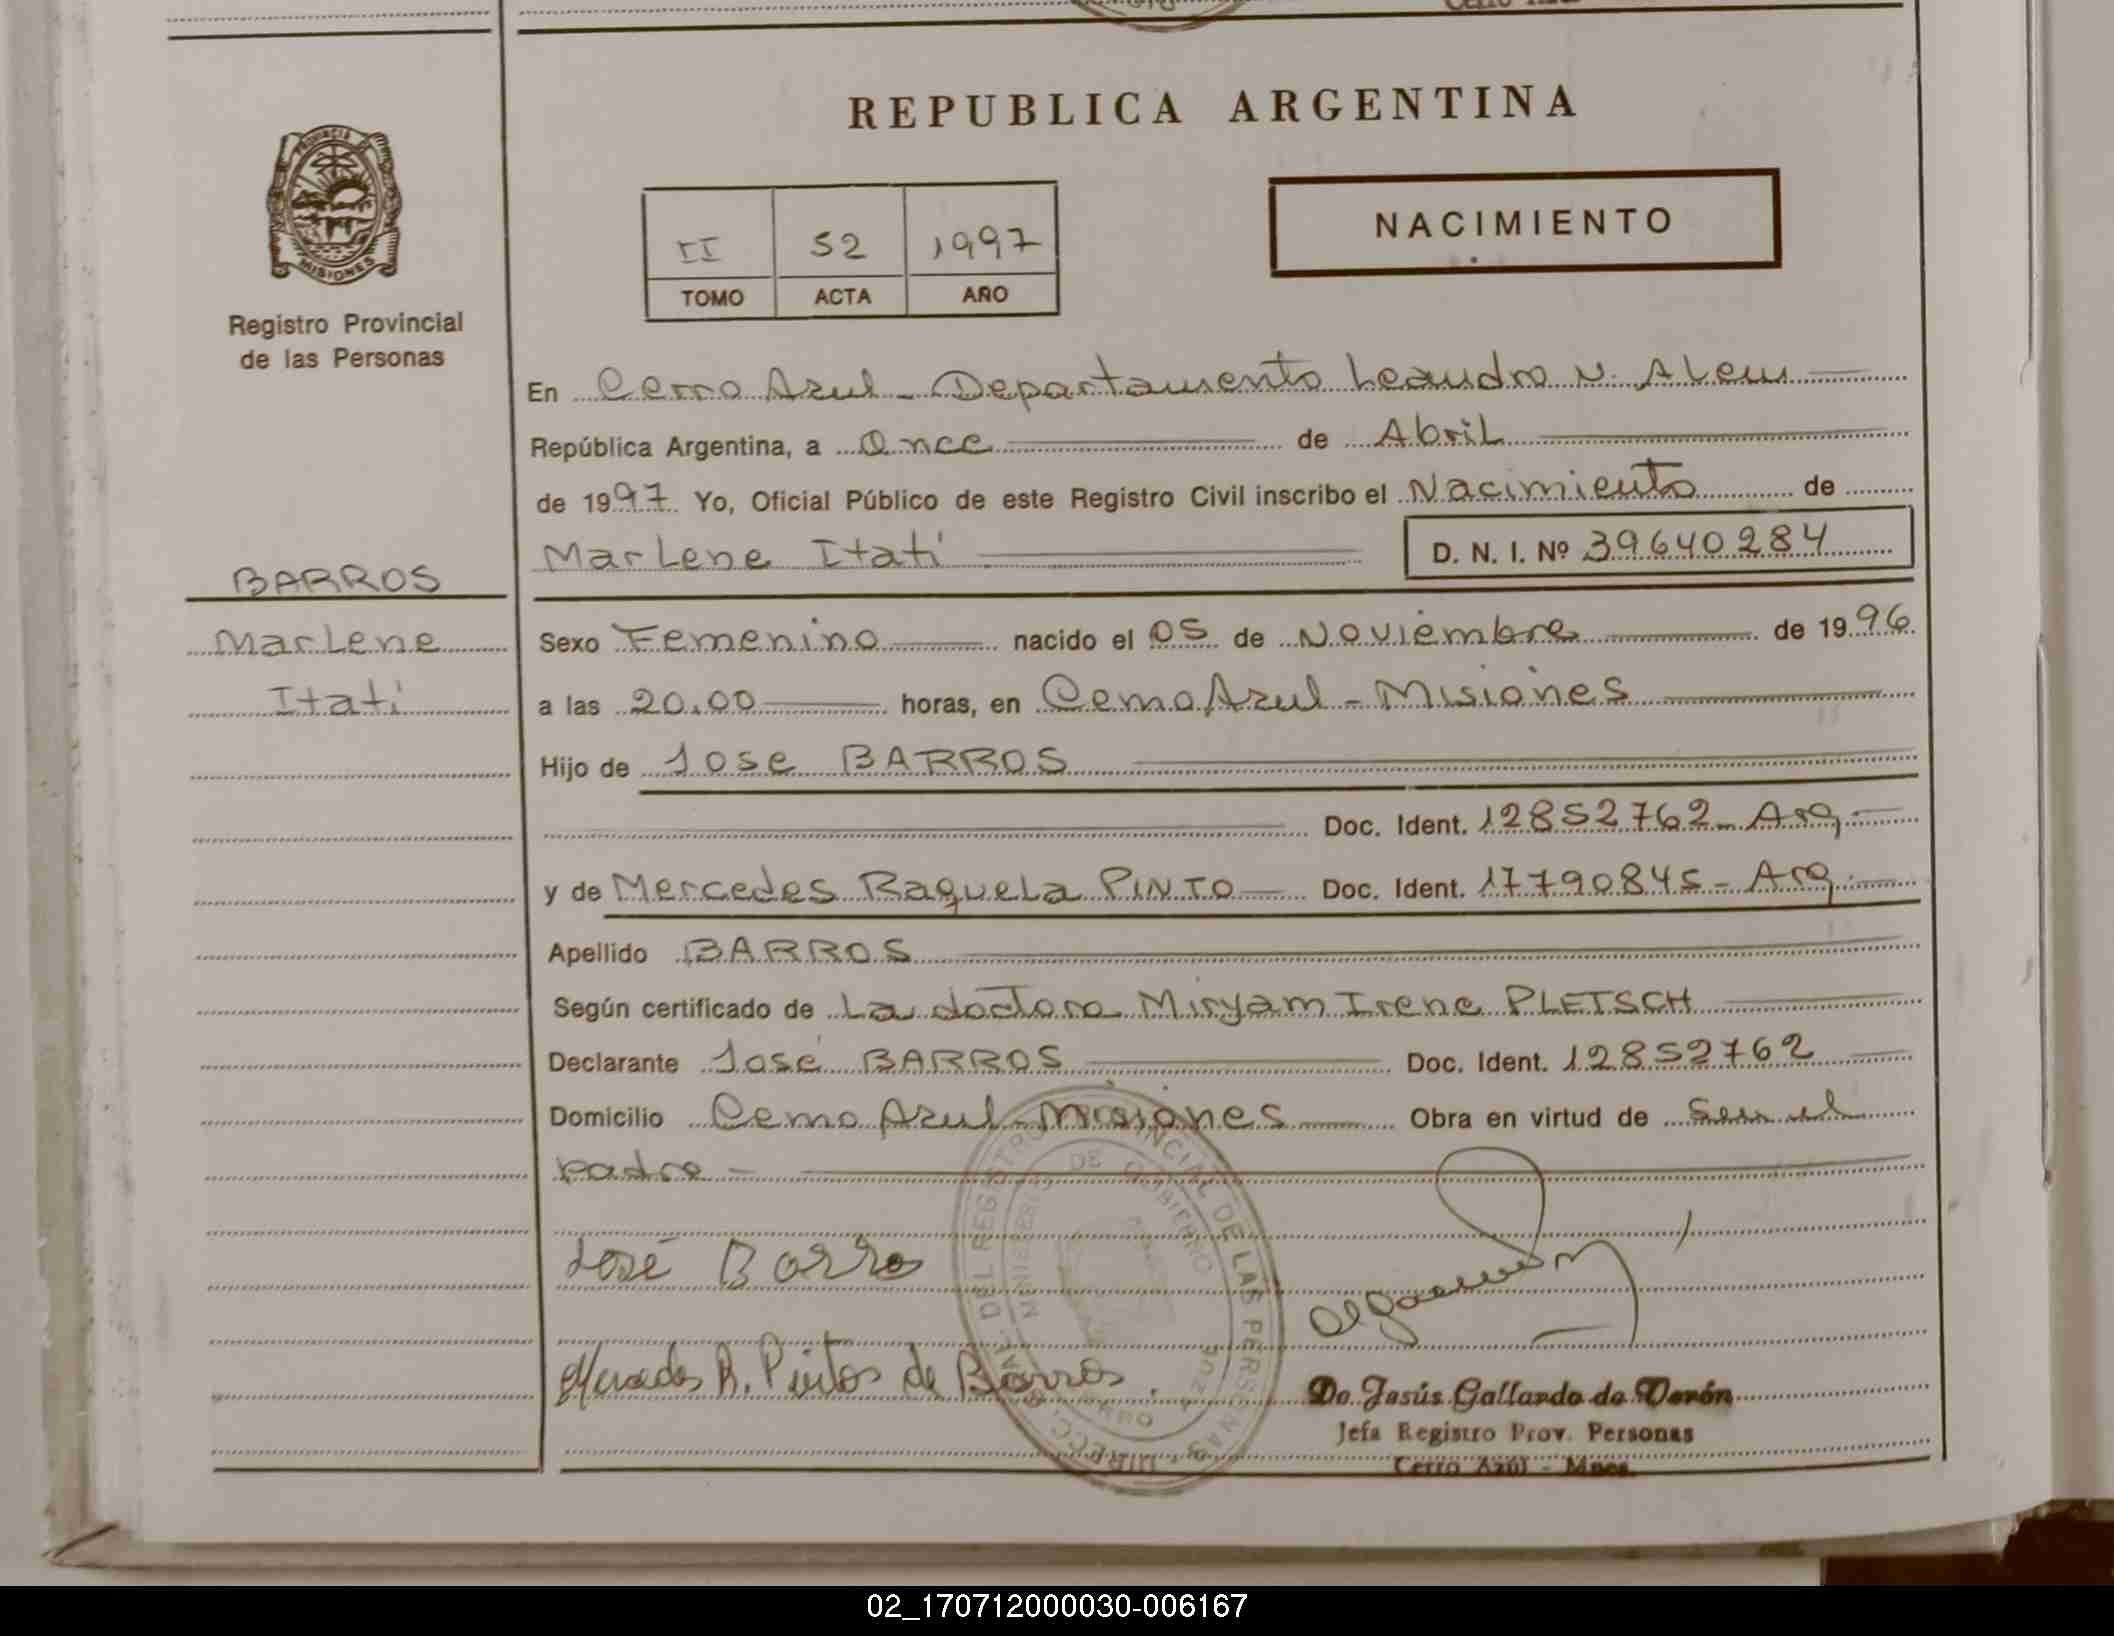 REPUBLICA ARGENTINA
PROVINCIA DE
MISIONES
Registro Provincial
de las Personas
NACIMIENTO
II 52 1997
TOMO ACTA AÑO
En Cerro Azul - Departamento Leandro N. Alem
República Argentina, a Once de Abril
de 1997 Yo, Oficial Público de este Registro Civil inscribo el Nacimiento de
Marlene Itatí D. N. I. Nº 39640284
BARROS
Marlene
Itatí
Sexo Femenino nacido el 05 de Noviembre de 1996
a las 20.00 horas, en Cerro Azul - Misiones
Hijo de Jose BARROS
Doc. Ident. 12852762 - Arg.
y de Mercedes Raquela PINTO Doc. Ident. 17790845 - Arg.
Apellido BARROS
Según certificado de La doctora Miryam Irene PLETSCH
Declarante José BARROS Doc. Ident. 12852762
Domicilio Cerro Azul - Misiones Obra en virtud de Ser el
padre -
José Barro
Mercedes R. Pintos de Barros.
DIRECC. GRAL. DEL REGISTRO PROVINCIAL DE LAS PERSONAS
MINISTERIO DE GOBIERNO
CERRO AZUL
De Jesús Gallardo de Verón
Jefa Registro Prov. Personas
Cerro Azúl - Mnes.
02_170712000030-006167